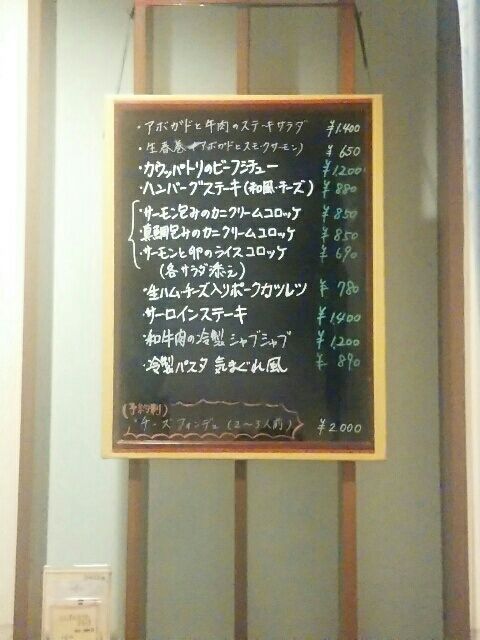 ・アボガドと牛肉のステーキサラダ ¥1.400
・生春巻(アボガドとスモークサーモン) ¥650
・カウッパトリのビーフシチュー ¥1,200
・ハンバーグステーキ(和風・チーズ) ¥880
・サーモン包みのカニクリームコロッケ ¥850
・真鯛包みのカニクリームコロッケ ¥850
・サーモンと卵のライスコロッケ ¥690
(各サラダ添え)
・生ハム・チーズ入りポークカツレツ ¥780
・サーロインステーキ ¥1,400
・和牛肉の冷製シャブシャブ ¥1,200
・冷製パスタ 気まぐれ風 ¥890
(予約制)
チーズフォンデュ(2〜3人前) ¥2,000